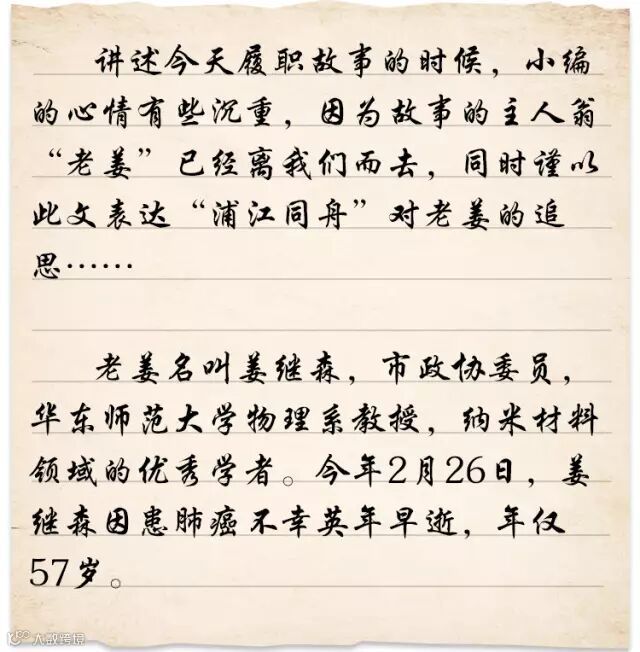 讲述今天履职故事的时候，小编
的心情有些沉重，因为故事的主人翁
“老姜”已经离我们而去，同时谨以
此文表达“浦江同舟”对老姜的追
思……
老姜名叫姜继森，市政协委员，
华东师范大学物理系教授，纳米材料
领域的优秀学者。今年2月26日，姜
继森因患肺癌不幸英年早逝，年仅
57岁。
大数跨境